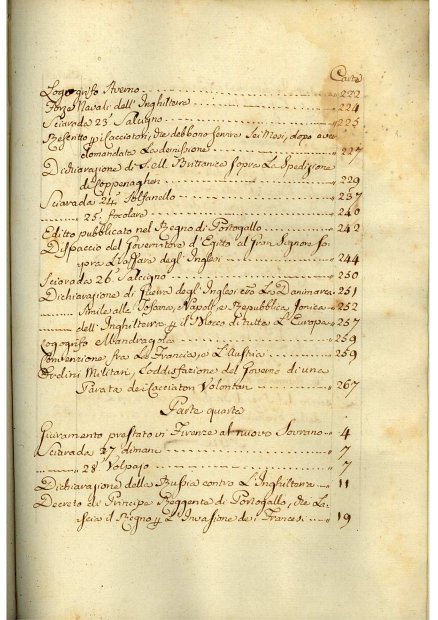 Carte
Logogrifo Averno 222
Forze Navali dell'Inghilterra 224
Sciarada 23. Salcigno 225
Rescritto p i Cacciatori, che debbono servire Sei Mesi, dopo aver
domandata La demissione 227
Dichiarazione di S. M. Brittanica sopra La Spedizione
di Coppenaghen 229
Sciarada 24. Solfanello 237
25. focolare 240
Editto pubblicato nel Regno di Portogallo 242
Dispaccio del Governatore d'Egitto al Gran Signore so-
pra L'affare degl'Inglesi 244
Sciarada 26. Salcigno 250
Dichiarazione di Guerra degl'Inglesi alla Danimarca 251
Simile alle Toscana, Napoli, e Repubblica Jonica 252
dell'Inghilterra p il Blocco di tutta L'Europa 257
Logogrifo Mandragola 259
Convenzione fra La Francia, e L'Austria 259
Ordini Militari, e soddisfazione del Governo di una
Parata de i Cacciatori Volontari 267
Parte quarta
Giuramento prestato in Firenze al nuovo Sovrano 4
Sciarada 27 dimani 7
28 Volpajo 7
Dichiarazione della Russia contro L'Inghilterra 11
Decreto del Principe Reggente di Portogallo, che La-
scia il Regno p L'Invasione de i Francesi 19